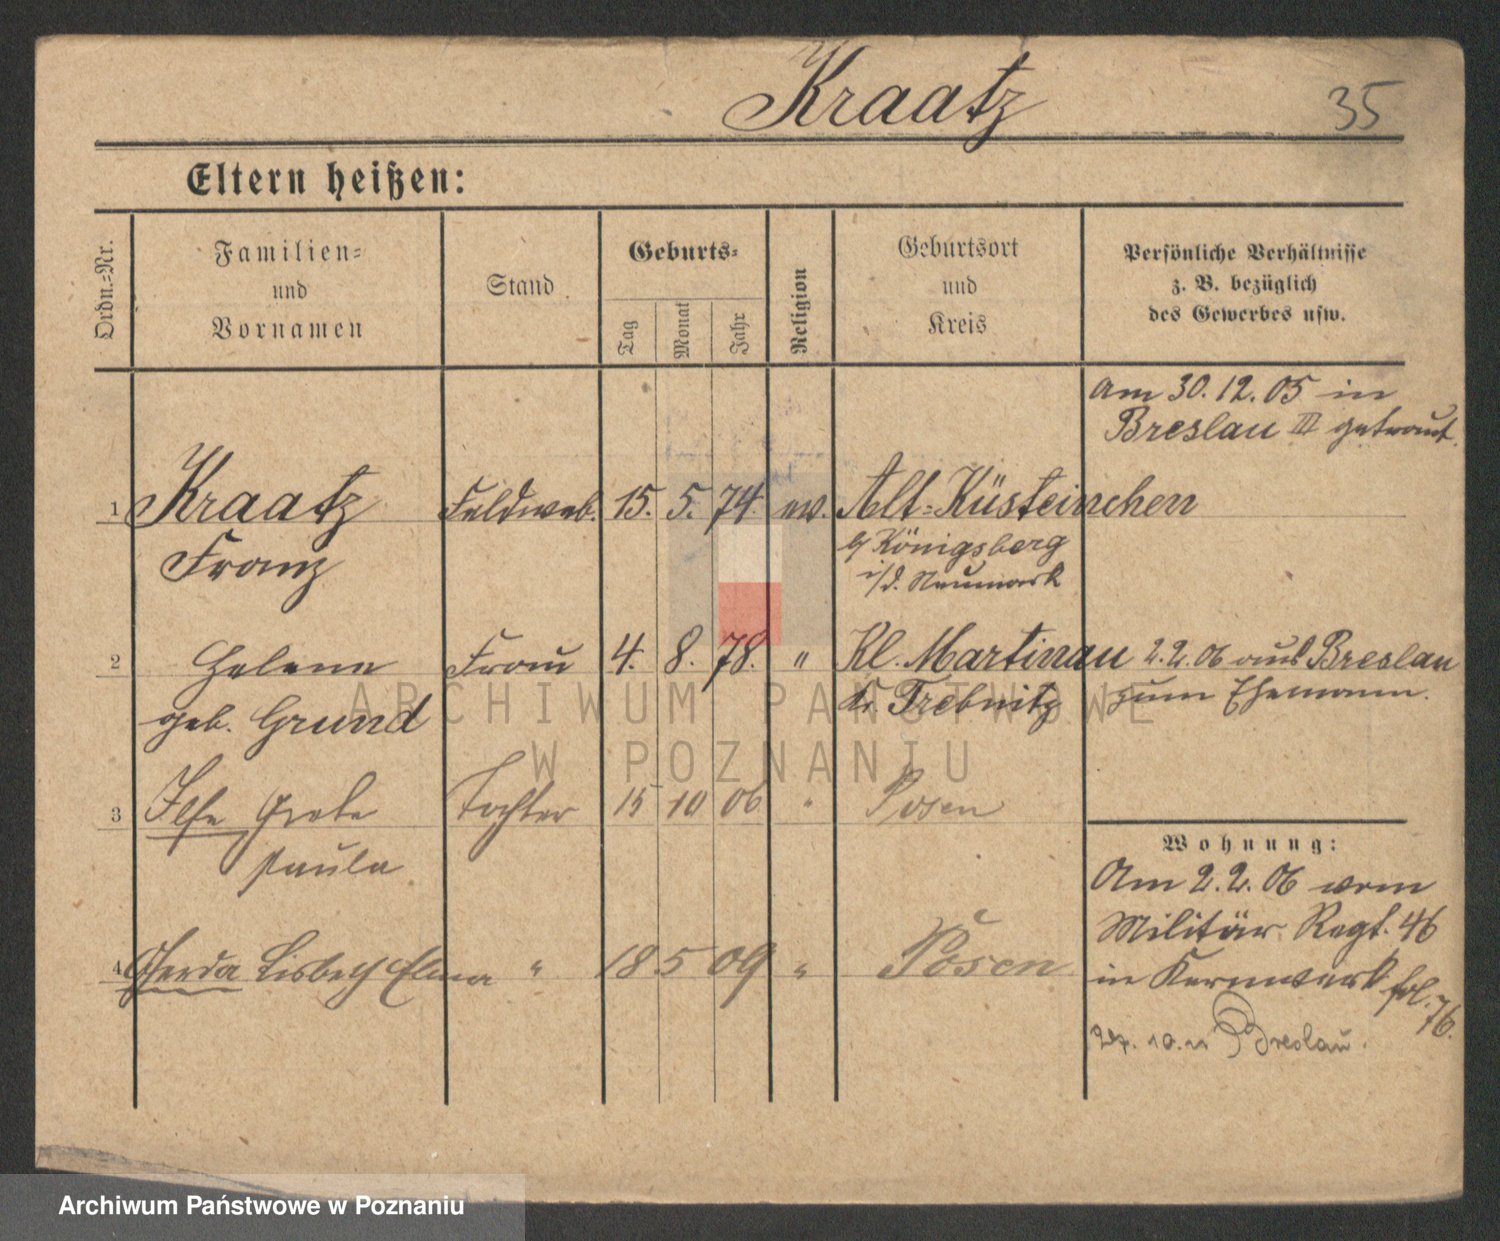 Kraatz
35
Eltern heißen:
Ordn.-Nr.
Familien-
und
Vornamen
Stand
Geburts-
Tag
Monat
Jahr
Religion
Geburtsort
und
Kreis
Persönliche Verhältnisse
z. B. bezüglich
des Gewerbes usw.
am 30.12.05 in
Breslau III getraut.
1 Kraatz Feldweb. 15. 5. 74. ev. Alt-Küsteinchen
Franz
b/ Königsberg
i/d. Neumark
2 Helene Frau 4. 8. 78. " Kl. Martinau 2.2.06 aus Breslau
geb. Grund Kr. Trebnitz zum Ehemann.
ARCHIWUM PAŃSTWOWE
W POZNANIU
3 Ilse Grete Tochter 15 10 06 " Posen
Paula
Wohnung:
Am 2.2.06 vom
Militär Regt. 46
in Kernwerk fol. 76.
4 Gerda Lisbeth Elma " 18 5 09 " Posen
10.11 Breslau.
Archiwum Państwowe w Poznaniu